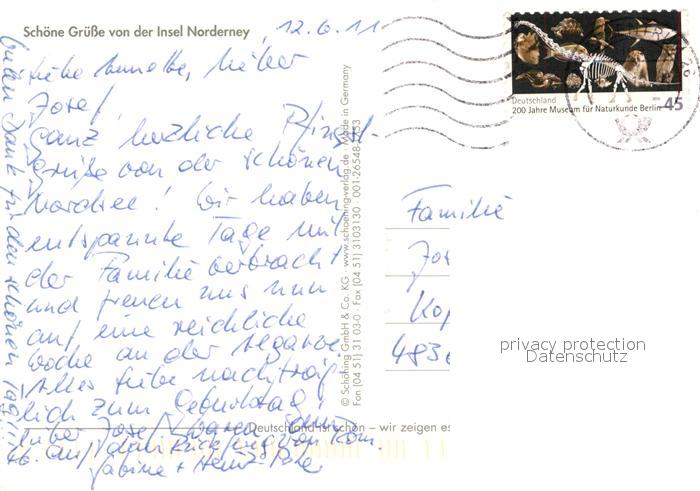 Schöne Grüße von der Insel Norderney
12.6.11
Liebe Annette, lieber
Josef,
ganz herzliche Pfingst-
grüße von der schönen
Nordsee! Wir haben
entspannte Tage mit
der Familie verbracht
und freuen uns nun
auf eine reichliche
Woche an der Algarve.
Alles Liebe nachträg-
lich zum Geburtstag!
lieber Josef, waren
auf dem Rückflug von Rom.
Sabine + Heinz-Peter
vielen Dank für den schönen Tag!!!
© Schöning GmbH & Co. KG · www.schoening-verlag.de · Made in Germany
Fon (04 51) 31 03-0 · Fax (04 51) 3103130 · 001-26548-
Deutschland ist schön – wir zeigen es
Deutschland
200 Jahre Museum für Naturkunde Berlin
45
Familie
Jos
Kop
483
privacy protection
Datenschutz